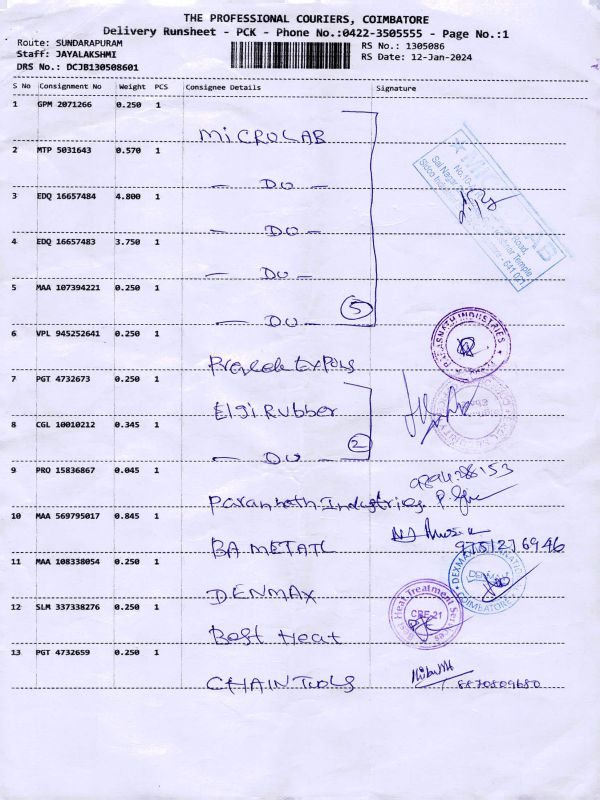 THE PROFESSIONAL COURIERS, COIMBATORE
Delivery Runsheet - PCK - Phone No.:0422-3505555 - Page No.:1
Route: SUNDARAPURAM
Staff: JAYALAKSHMI
DRS No.: DCJB130508601
RS No.: 1305086
RS Date: 12-Jan-2024
S No Consignment No Weight PCS Consignee Details Signature
1 GPM 2071266 0.250 1
MICROLAB
2 MTP 5031643 0.570 1
— DO —
3 EDQ 16657484 4.800 1
— DO —
4 EDQ 16657483 3.750 1
— DO —
5 MAA 107394221 0.250 1
— DO — 5
6 VPL 945252641 0.250 1
7 PGT 4732673 0.250 1
Elgi Rubber
8 CGL 10010212 0.345 1
— DO — 2
9 PRO 15836867 0.045 1
Industries
10 MAA 569795017 0.845 1
9751276946
11 MAA 108338054 0.250 1
DENMAX
COIMBATORE
12 SLM 337338276 0.250 1
Best Heat
Heat Treatment
CBE-21
13 PGT 4732659 0.250 1
CHAIN TOOLS
8870809680